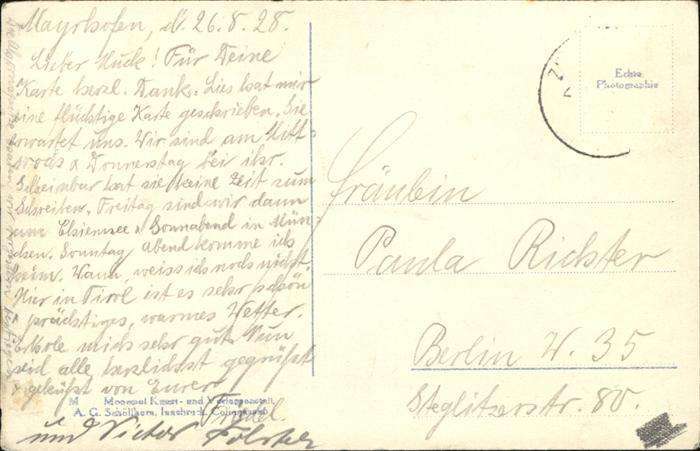 Mayrhofen, d. 26.8.28.
Lieber Muck! Für Deine
Karte herzl. Dank. Lies hat mir
eine flüchtige Karte geschrieben. Sie
erwartet uns. Wir sind am Mitt-
woch & Donnerstag bei ihr.
Scheinbar hat sie keine Zeit zum
Schreiben. Freitag sind wir dann
am Chiemsee & Sonnabend in Mün-
chen. Sonntag abend komme ich
heim. Wann, weiss ich noch nicht.
Hier in Tirol ist es sehr schön
& prächtiges, warmes Wetter.
Erhole mich sehr gut. Nun
seid alle herzlichst gegrüßt
& geküßt von Eurer
Trudel.
und Victor
M Monopol Kunst- und Verlagsanstalt
A. G. Schöllhorn, Innsbruck
Echte
Photographie
Fräulein
Paula Richter
Berlin W. 35
Steglitzerstr. 80.